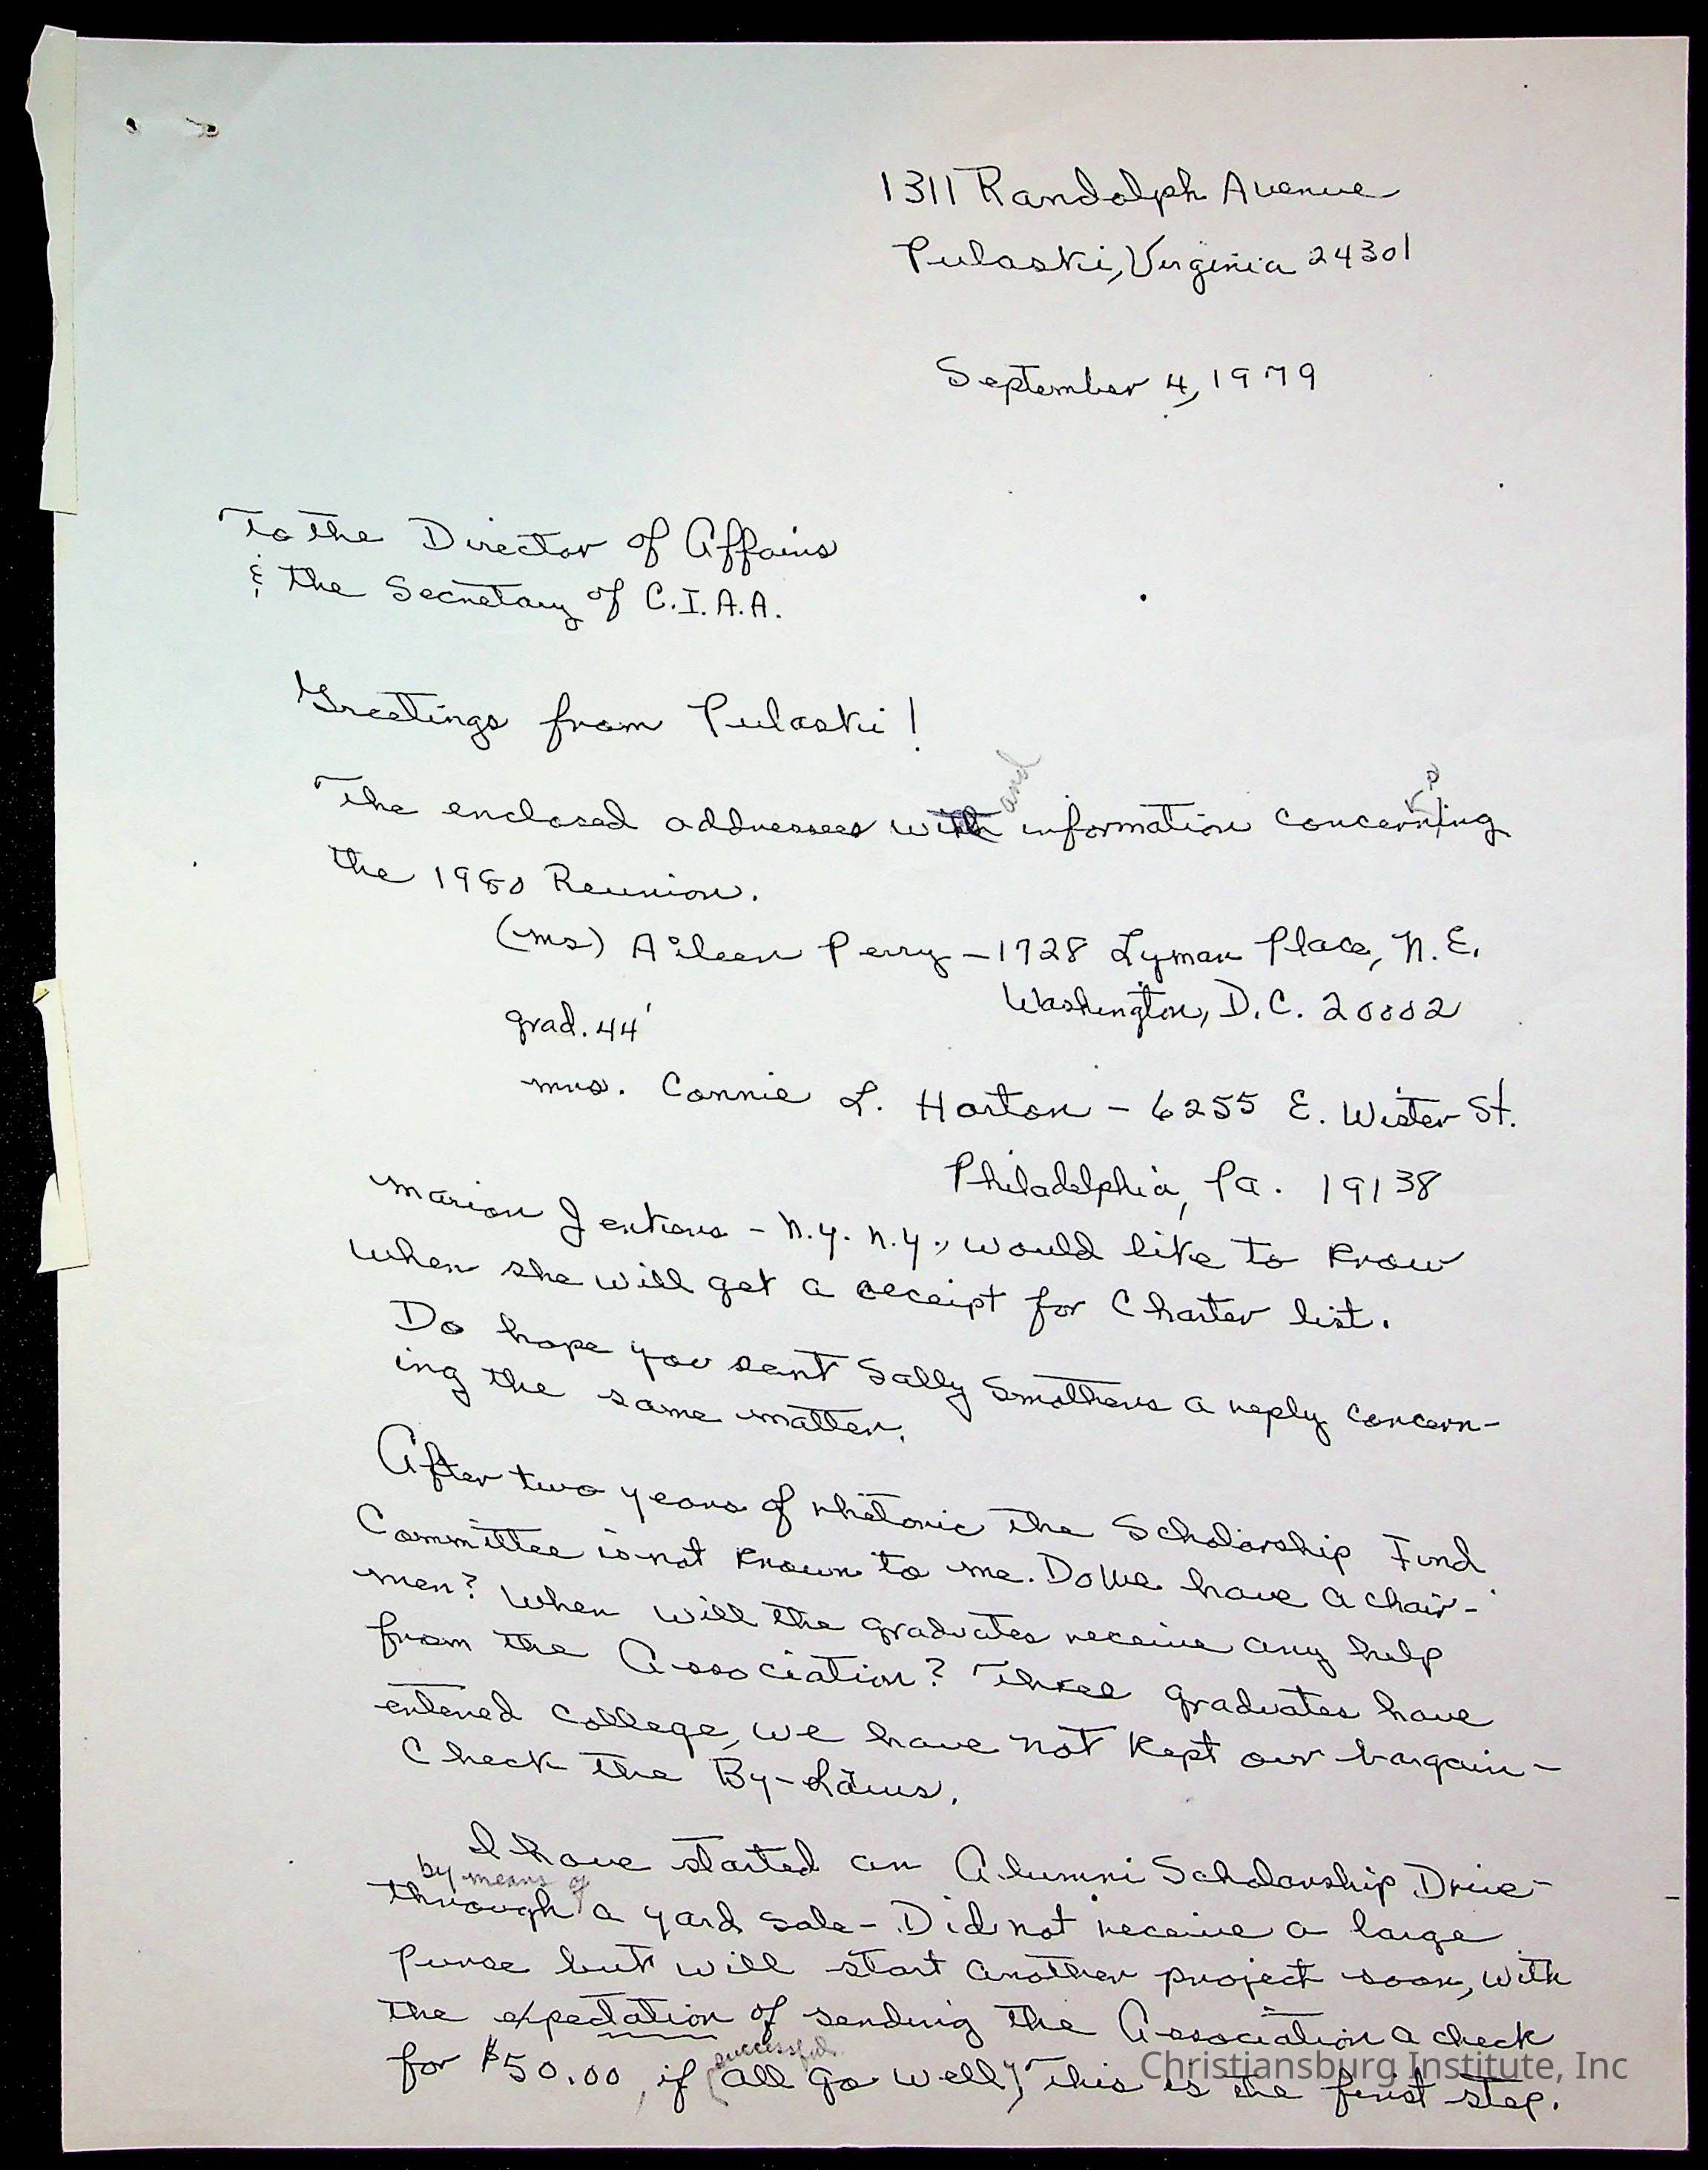 1311 Randolph Avenue
Pulaski, Virginia 24301
September 4, 1979
To the Director of Affairs
& the Secretary of C.I.A.A.
Greetings from Pulaski!
and
The enclosed addresses with information concerning
the 1980 Reunion.
(Ms) Aileen Perry - 1728 Lyman Place, N.E.
Washington, D.C. 20002
grad. 44'
Mrs. Connie L. Horton - 6255 E. Wister St.
Philadelphia, Pa. 19138
Marion Jenkins - N.Y. N.Y., would like to know
when she will get a receipt for Charter list.
Do hope you sent Sally Smothers a reply concern-
ing the same matter.
After two years of rhetoric the Scholarship Fund
Committee is not known to me. Do we have a chair-
men? When will the graduates receive any help
from the Association? Three graduates have
entered college, we have not kept our bargain -
Check the By-Laws.
I have started an Alumni Scholarship Drive
by means of
through a yard sale - Did not receive a large
purse but will start another project soon, with
the expectation of sending the Association a check
successful
for $50.00, if (all go well), This is the first step.
Christiansburg Institute, Inc